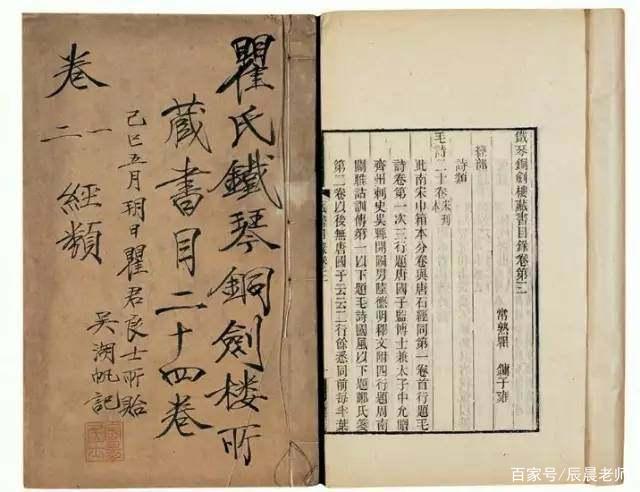 瞿氏鐵琴銅劍樓所
藏書目二十四卷
卷一二 經類
己巳五月朔日瞿君良士所貽
吳湖帆記
鐵琴銅劍樓藏書目錄卷第三
常熟瞿 鏞子雍
經部
詩類
毛詩二十卷宋刊本
此南宋巾箱本分卷與唐石經同第一卷首行題毛
詩卷第一次三行題唐國子監博士兼太子中允贈
齊州刺史吳縣開國男陸德明釋文附四行題周南
關雎詁訓傳第一以下題毛詩國風以下題鄭氏箋
第二卷以後無唐國子云云二行餘悉同前每半葉
百家号/辰晨老师